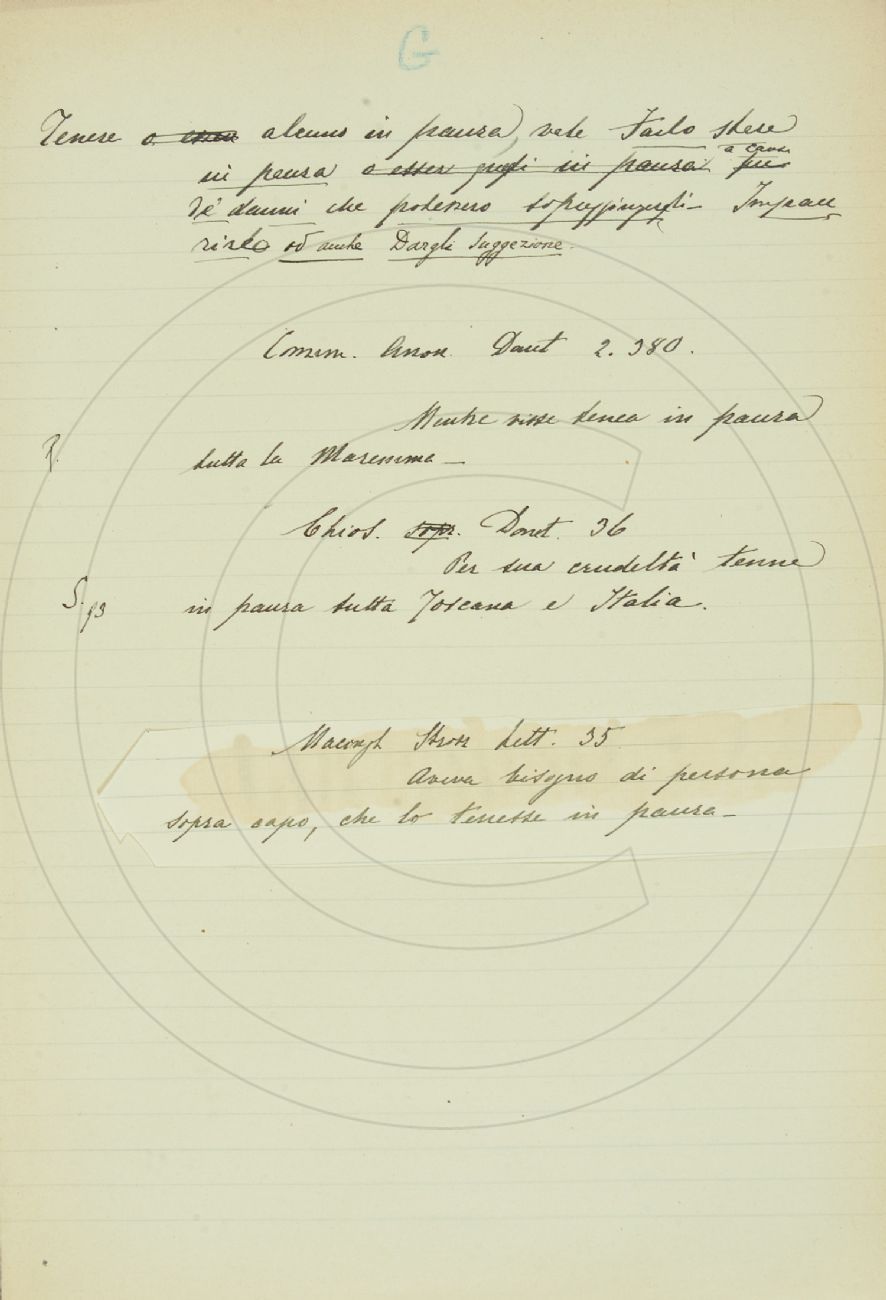 G
Tenere o esser alcuno in paura, vale Farlo stare
in paura o esser in paura per a caus
de' danni che potessero sopraggiungergli - Impau
rirlo od anche Dargli suggezione.
Comm. Anon. Dant 2. 380.
Mentre visse tenea in paura
tutta la Maremma -
Chios. sopr. Dant. 36
Per sua crudeltà tenne
in paura tutta Toscana e Italia.
Macingh Stroz Lett. 35
Aveva bisogno di persona
sopra capo, che lo tenesse in paura -